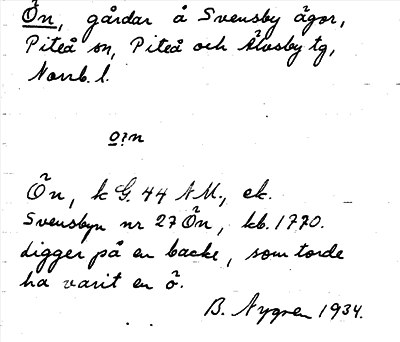 Ön, gårdar å Svensby ägor,
Piteå sn, Piteå och Älvsby tg,
Norrb. l.
o:n
Ön, k G. 44 NM., ek.
Svensbyn nr 27 Ön, kb. 1770.
Ligger på en backe, som torde
ha varit en ö.
B. Nygren 1934.